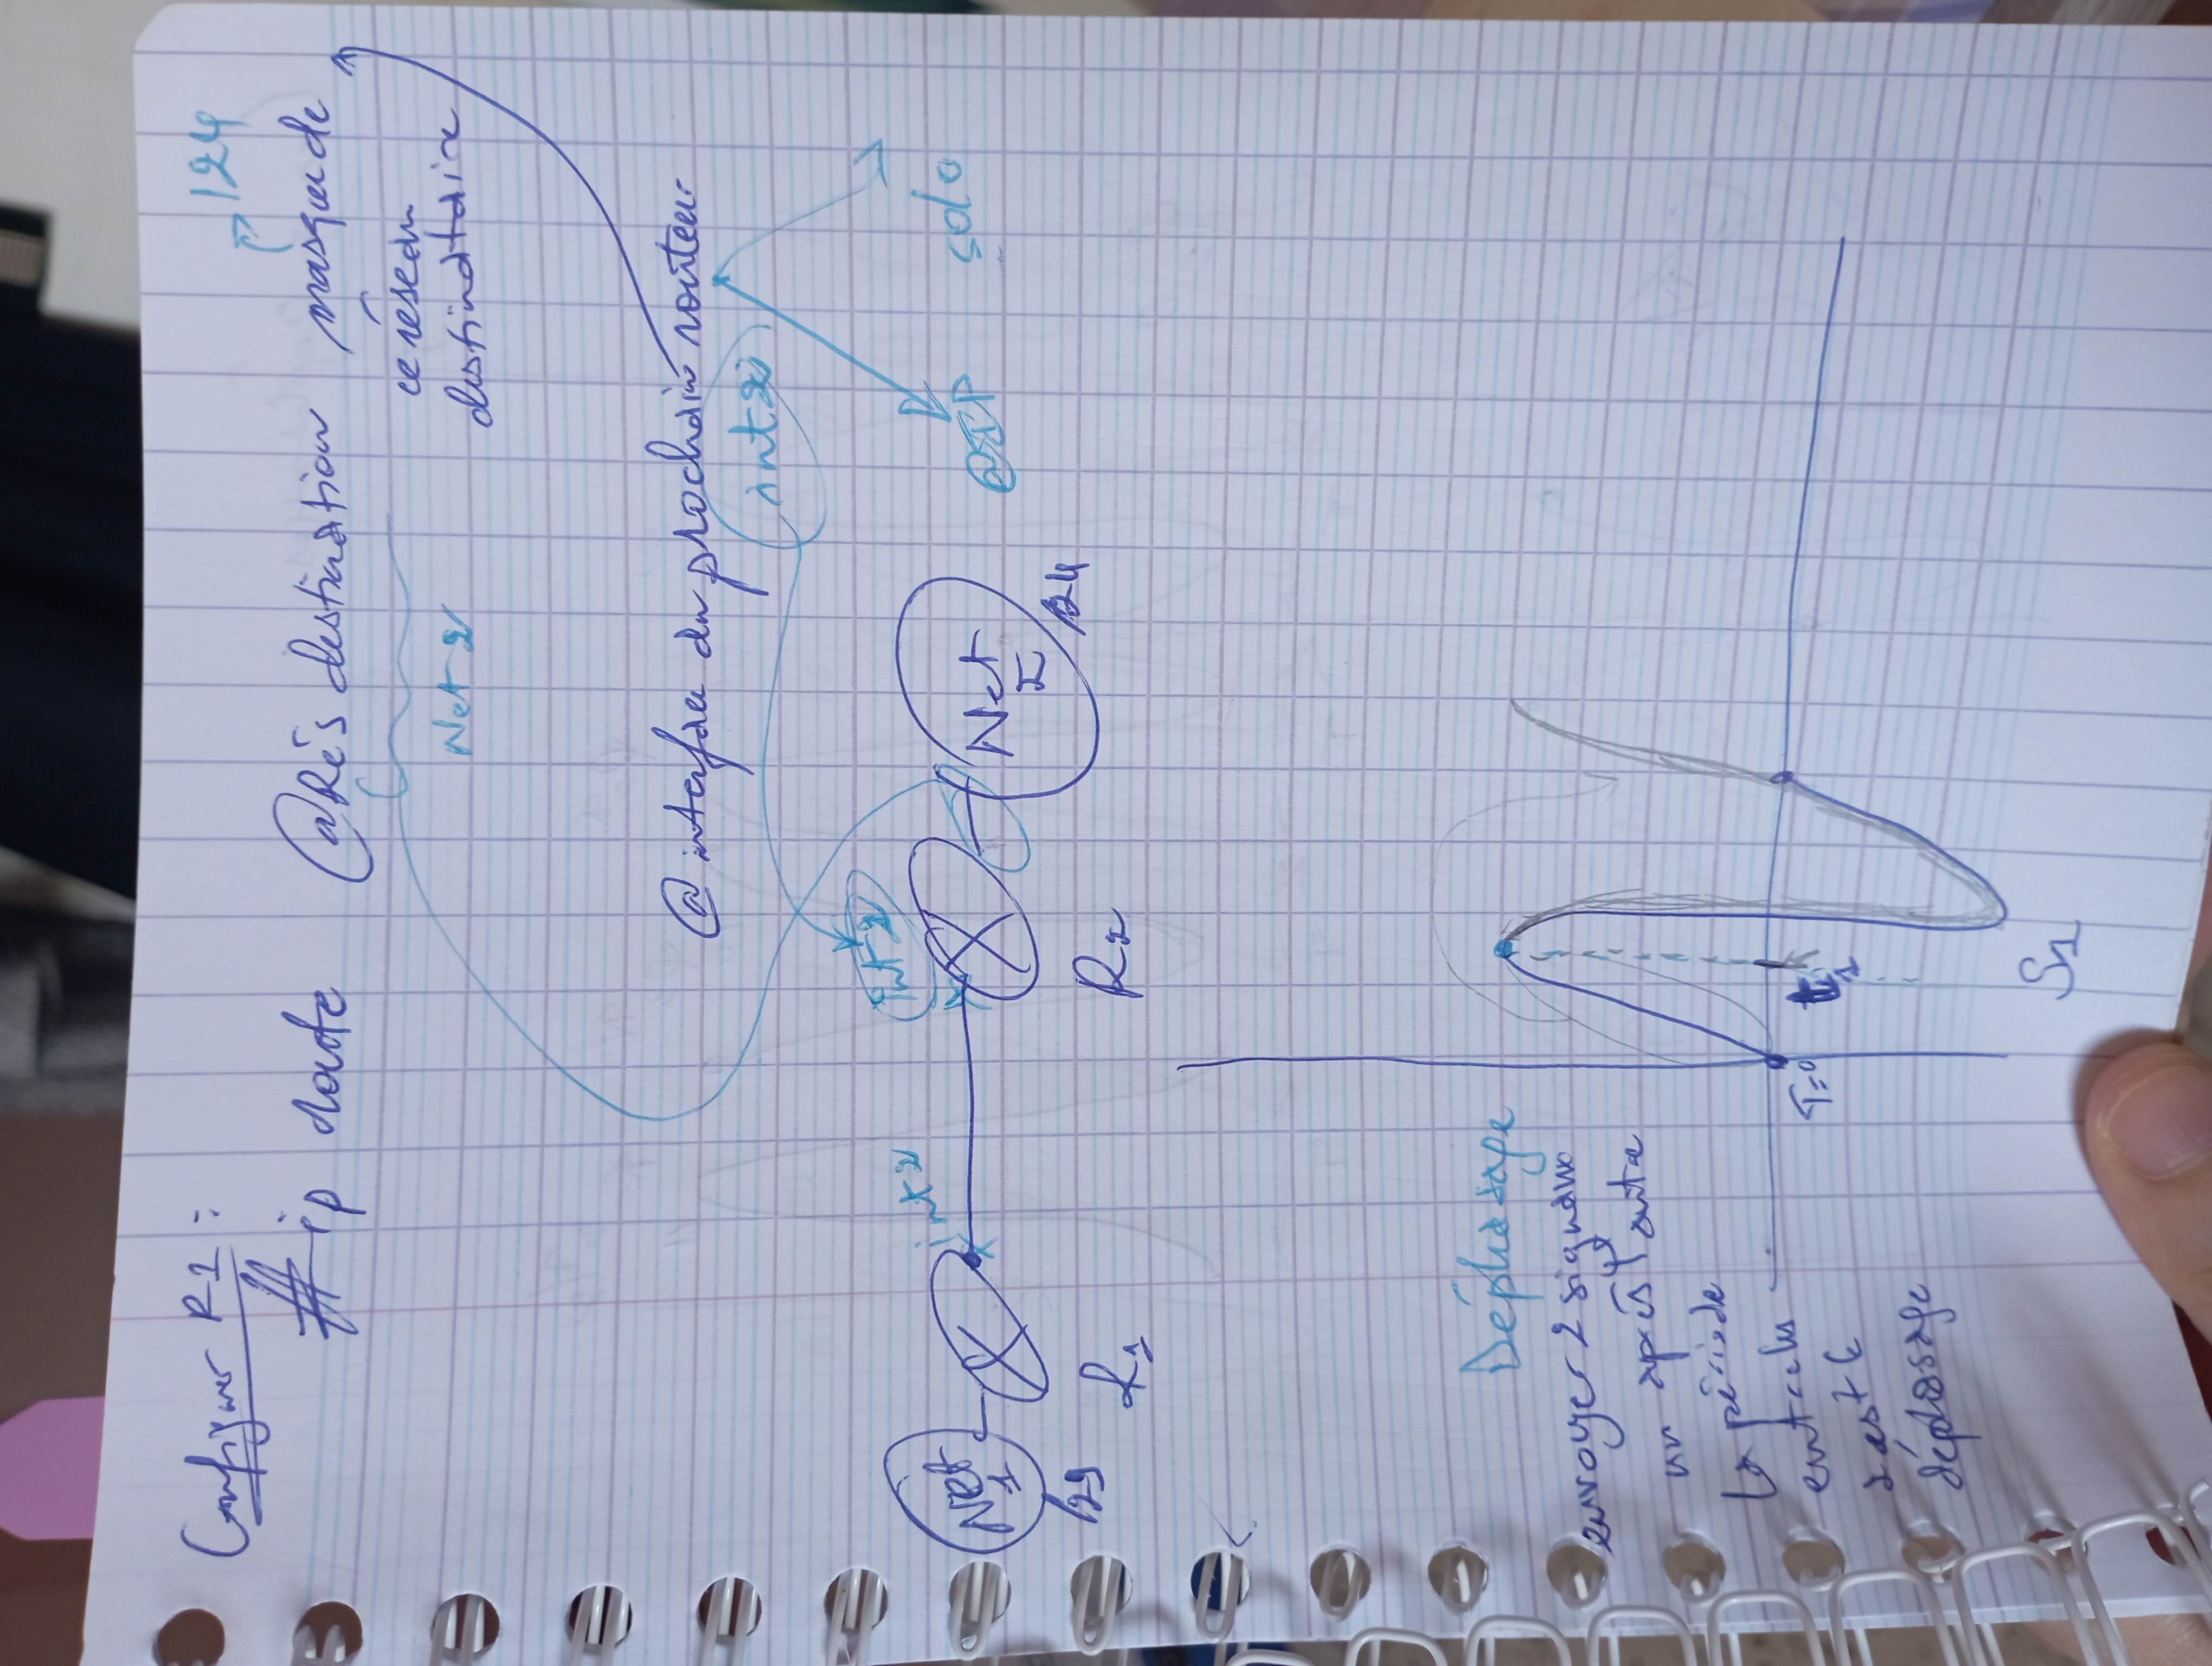 Configurer R1 :
/24
# ip route @Rés destination masque de
ce réseau
destinataire
Net 2
@ interface du prochain routeur
int 2
int 2
int 2
Net
1
Net
2
@IP
s0/0
/29
/24
R1
R2
Déphasage
envoyer 2 signaux
un après l'autre
la période
entre les
2 est le
déphasage
T=0
t1
S1